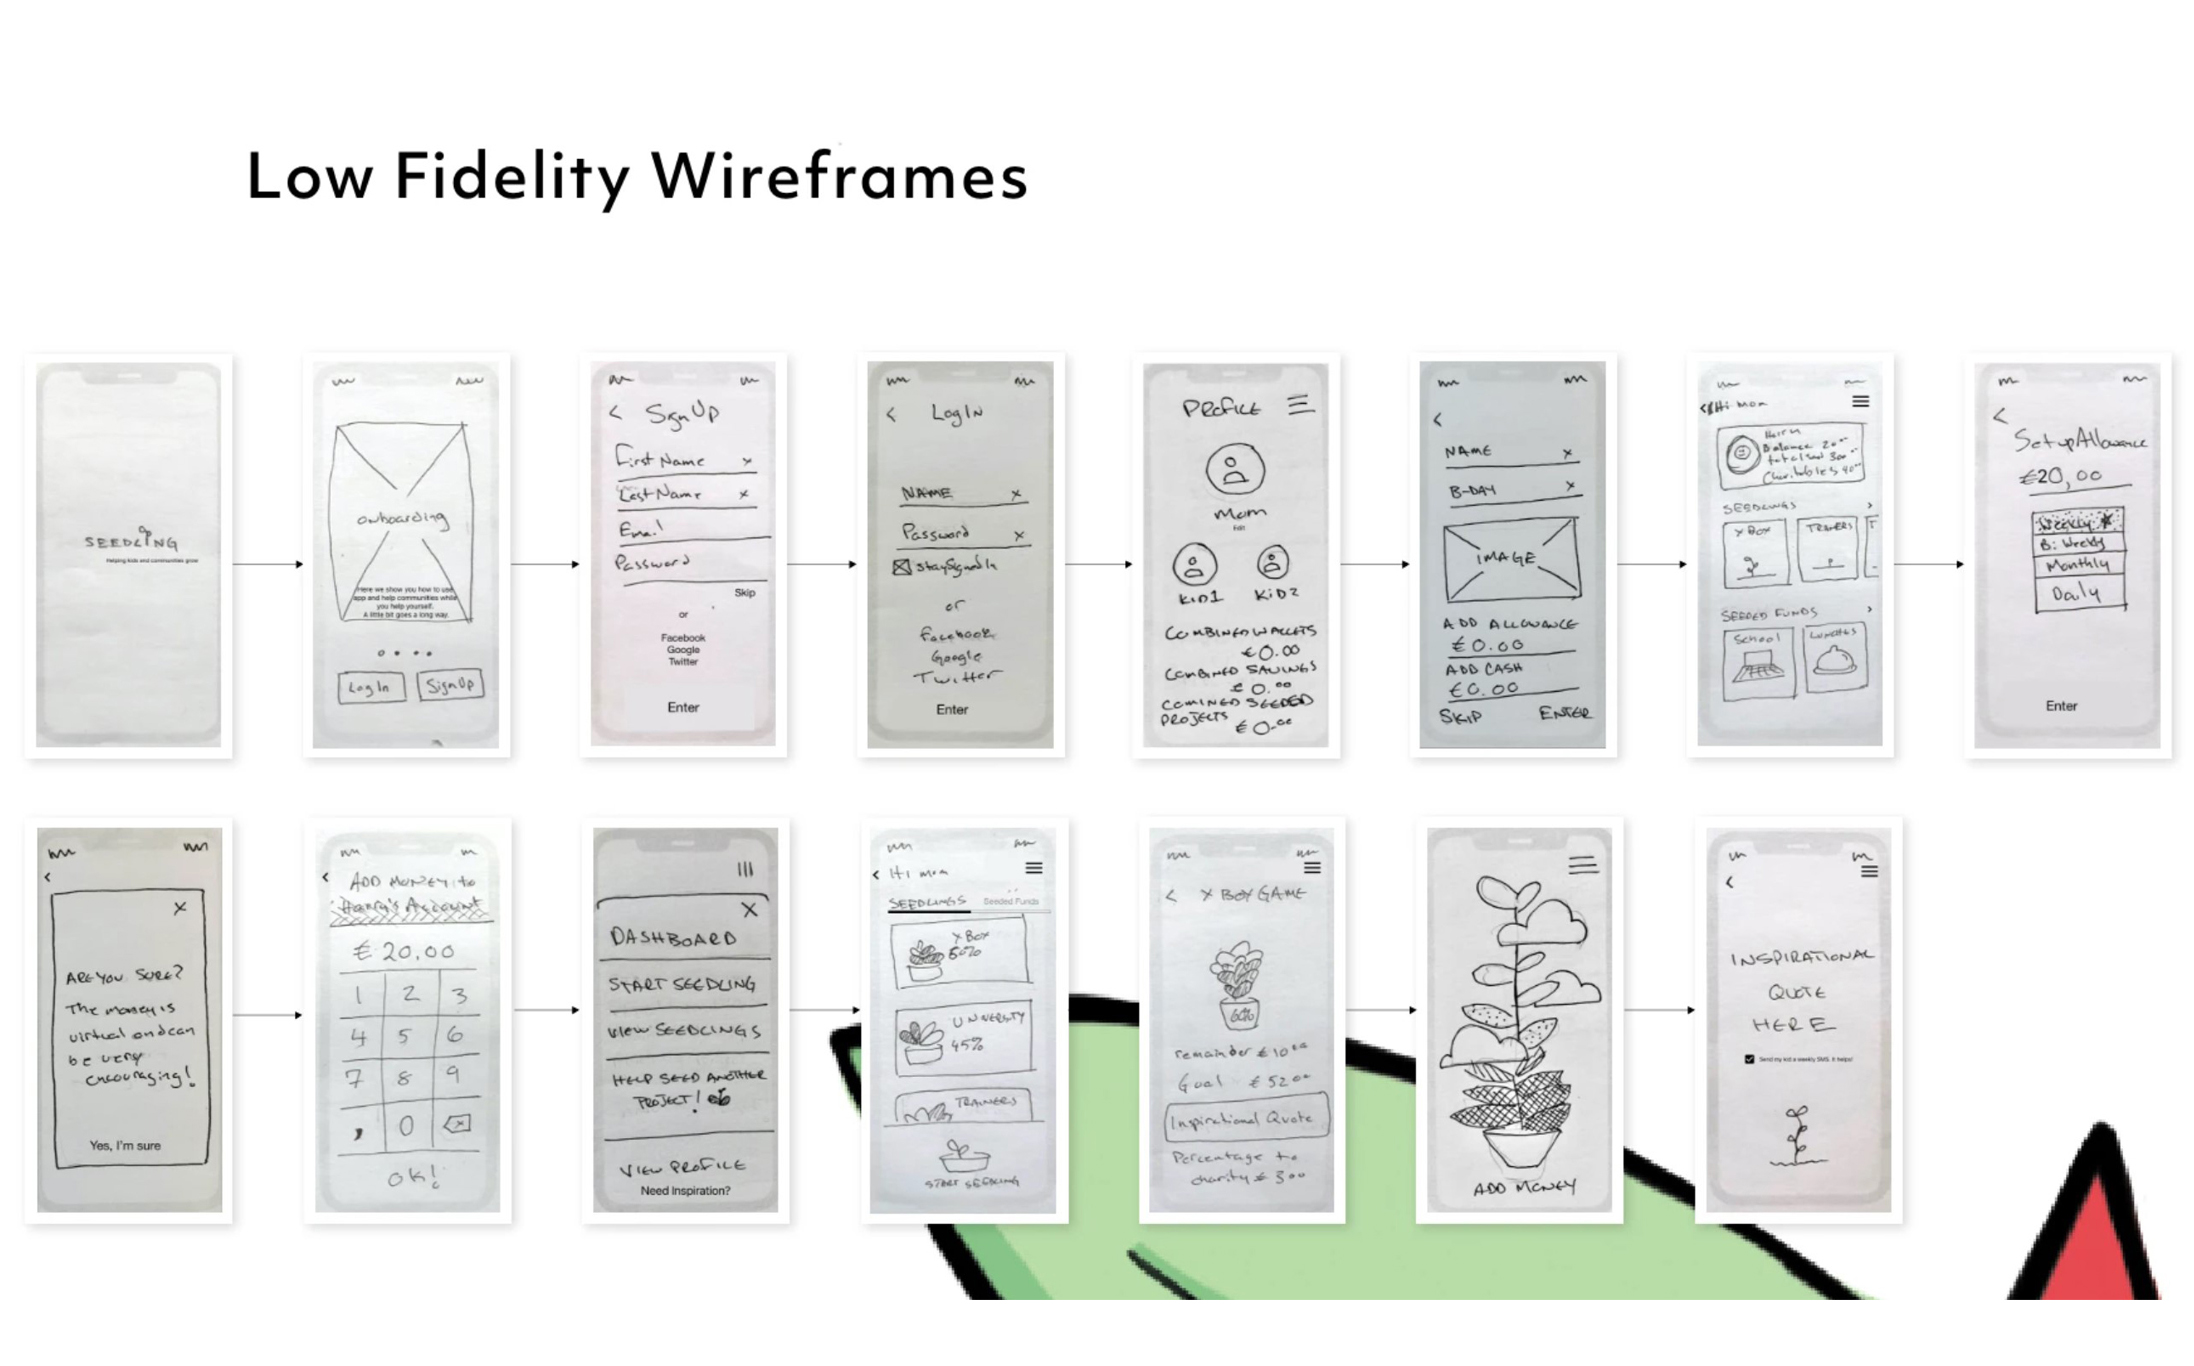 Low Fidelity Wireframes
SEEDLING
Helping kids and communities grow
onboarding
Here we show you how to use
app and help communities while
you help yourself.
A little bit goes a long way.
Log In
Sign Up
< Sign Up
First Name x
Last Name x
Email
Password
Skip
or
Facebook
Google
Twitter
Enter
< Log In
NAME x
Password x
Stay Signed In
or
Facebook
Google
Twitter
Enter
PROFILE
Mom
Edit
KID1 KID2
COMBINED WALLETS
€0.00
COMBINED SAVINGS
€0.00
COMINED SEEDED
PROJECTS €0.00
<
NAME x
B-DAY x
IMAGE
ADD ALLOWANCE
€0.00
ADD CASH
€0.00
SKIP ENTER
Hi mom
Balance 20
SEEDLINGS >
X BOX
TRAINERS
T
SEEDED FUNDS >
School
LUNCHES
<
Set up Allowance
€20,00
Weekly
Bi-Weekly
Monthly
Daily
Enter
<
X
ARE YOU SURE?
The money is
virtual and can
be very
encouraging!
Yes, I'm sure
< ADD MONEY to
Harry's Account
€ 20.00
1 2 3
4 5 6
7 8 9
, 0 x
OK!
X
DASHBOARD
START SEEDLING
VIEW SEEDLINGS
HELP SEED ANOTHER
PROJECT!
VIEW PROFILE
Need Inspiration?
< Hi mom
SEEDLINGS Seeded Funds
X Box
60%
UNIVERSITY
45%
TRAINERS
START SEEDLING
< X BOX GAME
60%
remainder €10 00
Goal €52 00
Inspirational Quote
Percentage to
charity € 3 00
ADD MONEY
<
INSPIRATIONAL
QUOTE
HERE
Send my kid a weekly SMS. It helps!